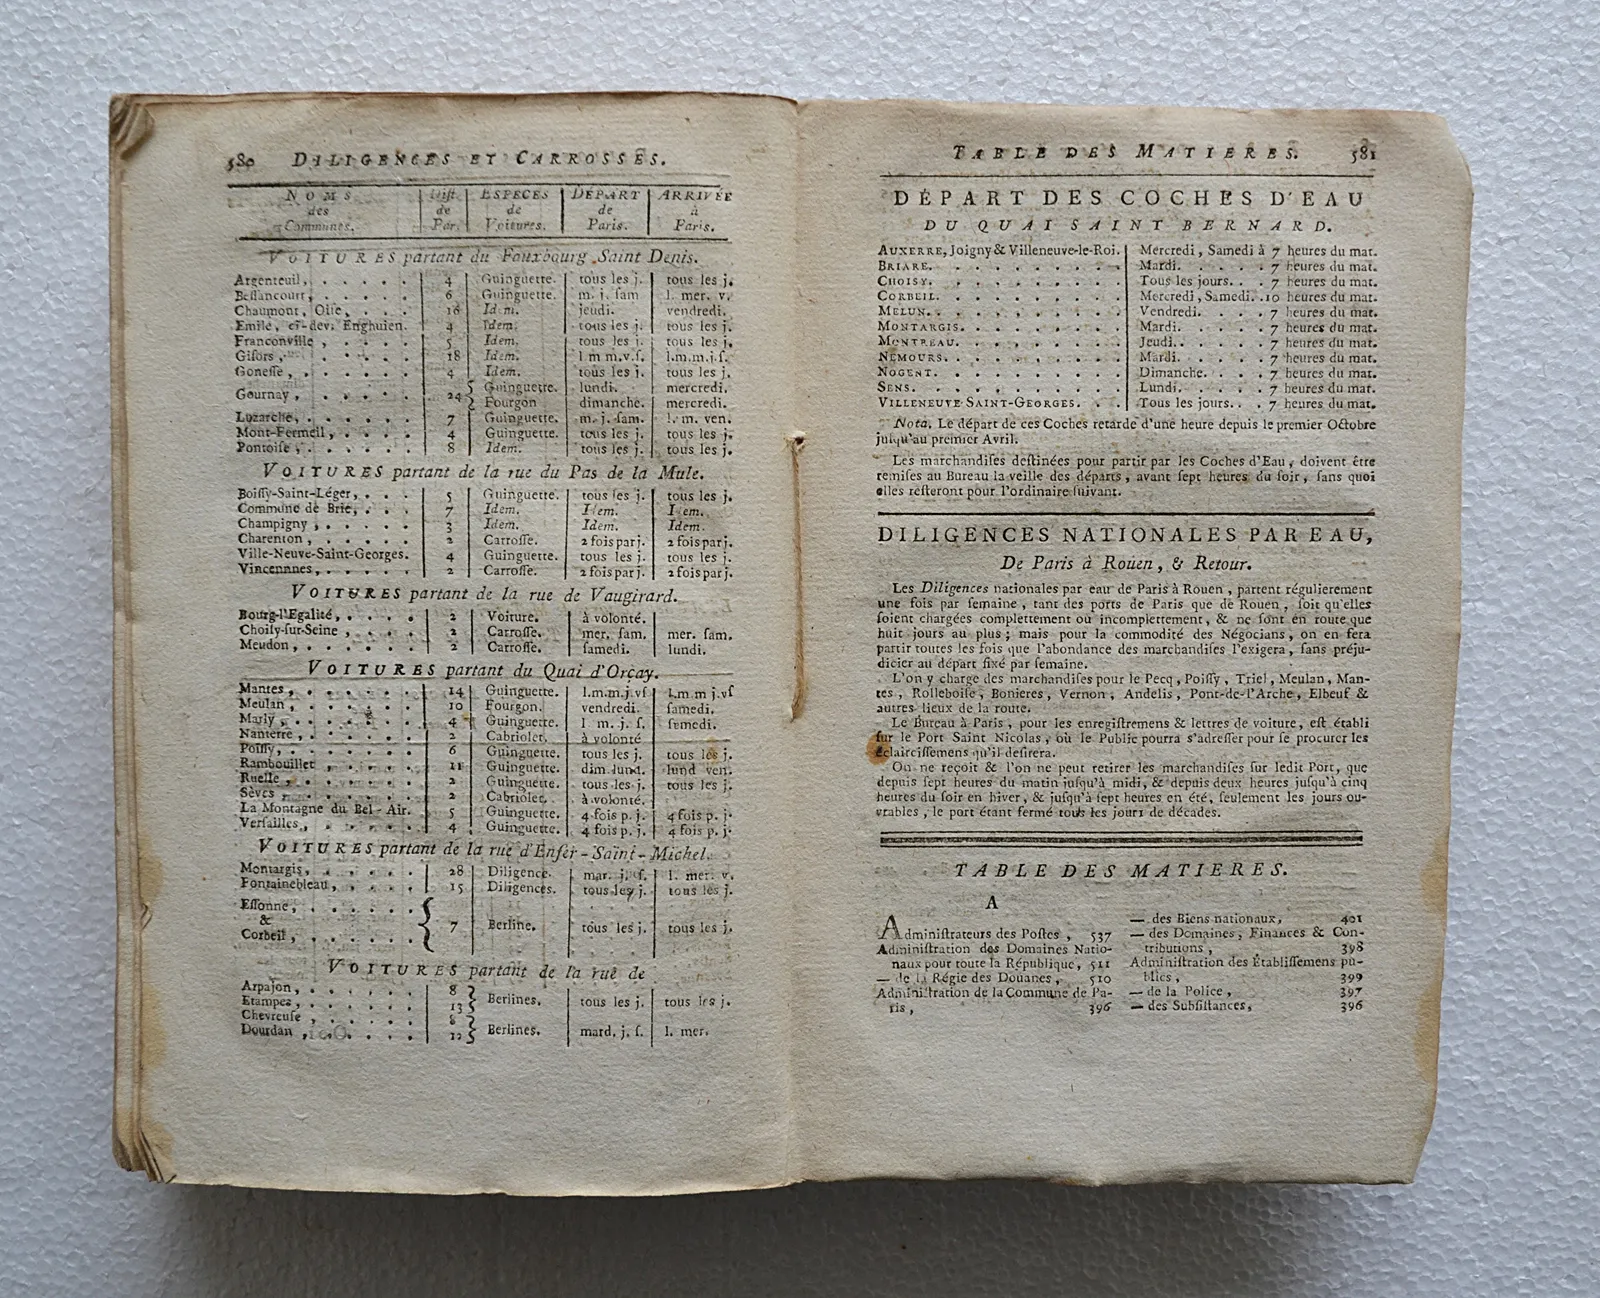 580 DILIGENCES ET CARROSSES.
NOMS des Communes. | Dist. de Par. | ESPECES de Voitures. | DÉPART de Paris. | ARRIVÉE à Paris.
VOITURES partant du Fauxbourg Saint Denis.
Argenteuil, . . . . . 4 Guinguette. tous les j. tous les j.
Bellancourt, . . . . . 6 Guinguette. m. j. sam l. mer. v.
Chaumont, Oise, . . . 16 Idem. jeudi. vendredi.
Emile, ci-dev. Enghuien. 4 Idem. tous les j. tous les j.
Franconville, . . . . 5 Idem. tous les j. tous les j.
Gisors, . . . . . 18 Idem. l m m.v.s. l.m.m.j.s.
Gonesse, . . . . . 4 Idem. tous les j. tous les j.
Gournay, . . . . . 24 { Guinguette. lundi. mercredi.
Fourgon dimanche. mercredi.
Luzarche, . . . . . 7 Guinguette. m. j. sam. l. m. ven.
Mont-Fermeil, . . . . 4 Guinguette. tous les j. tous les j.
Pontoise, . . . . . 8 Idem. tous les j. tous les j.
VOITURES partant de la rue du Pas de la Mule.
Boissy-Saint-Léger, . . . 5 Guinguette. tous les j. tous les j.
Commune de Brie, . . . 7 Idem. Idem. Idem.
Champigny, . . . . . 3 Idem. Idem. Idem.
Charenton, . . . . . 2 Carrosse. 2 fois par j. 2 fois par j.
Ville-Neuve-Saint-Georges. 4 Guinguette. tous les j. tous les j.
Vincennnes, . . . . . 2 Carrosse. 2 fois par j. 2 fois par j.
VOITURES partant de la rue de Vaugirard.
Bourg-l'Egalité, . . . . 2 Voiture. à volonté.
Choisy-sur-Seine, . . . 2 Carrosse. mer. sam. mer. sam.
Meudon, . . . . . 2 Carrosse. samedi. lundi.
VOITURES partant du Quai d'Orçay.
Mantes, . . . . . 14 Guinguette. l.m.m.j.vs l.m m j.vs
Meulan, . . . . . 10 Fourgon. vendredi. samedi.
Marly, . . . . . 4 Guinguette. l m. j. s. semedi.
Nanterre, . . . . . 2 Cabriolet. à volonté
Poissy, . . . . . 6 Guinguette. tous les j. tous les j.
Rambouillet . . . . 11 Guinguette. dim. lund. lund ven.
Ruelle, . . . . . 2 Guinguette. tous les j. tous les j.
Sèves, . . . . . 2 Cabriolet. à volonté.
La Montagne du Bel-Air. 5 Guinguette. 4 fois p. j. 4 fois p. j.
Versailles, . . . . 4 Guinguette. 4 fois p. j. 4 fois p. j.
VOITURES partant de la rue d'Enfer-Saint-Michel.
Montargis, . . . . . 28 Diligence. mar. j. s. l. mer. v.
Fontainebleau, . . . . 15 Diligences. tous les j. tous les j.
Essonne, . . . . .
& { 7 Berline. tous les j. tous les j.
Corbeil, . . . . .
VOITURES partant de la rue de
Arpajon, . . . . . 8 } Berlines. tous les j. tous les j.
Etampes, . . . . . 13
Chevreuse . . . . . 8 } Berlines. mard. j. s. l. mer.
Dourdan, . . . . . 12
TABLE DES MATIERES. 581
DÉPART DES COCHES D'EAU
DU QUAI SAINT BERNARD.
AUXERRE, Joigny & Villeneuve-le-Roi. Mercredi, Samedi à 7 heures du mat.
BRIARE. . . . . . . . . Mardi. . . . . 7 heures du mat.
CHOISY. . . . . . . . . Tous les jours. . . 7 heures du mat.
CORBEIL. . . . . . . . . Mercredi, Samedi. . 10 heures du mat.
MELUN. . . . . . . . . Vendredi. . . . 7 heures du mat.
MONTARGIS. . . . . . . . Mardi. . . . . 7 heures du mat.
MONTREAU. . . . . . . . Jeudi. . . . . 7 heures du mat.
NEMOURS. . . . . . . . . Mardi. . . . . 7 heures du mat.
NOGENT. . . . . . . . . Dimanche. . . . 7 heures du mat.
SENS. . . . . . . . . . Lundi. . . . . 7 heures du mat.
VILLENEUVE SAINT-GEORGES. . . Tous les jours. . . 7 heures du mat.
Nota. Le départ de ces Coches retarde d'une heure depuis le premier Octobre
jusqu'au premier Avril.
Les marchandises destinées pour partir par les Coches d'Eau, doivent être
remises au Bureau la veille des départs, avant sept heures du soir, sans quoi
elles resteront pour l'ordinaire suivant.
DILIGENCES NATIONALES PAR EAU,
De Paris à Rouen, & Retour.
Les Diligences nationales par eau de Paris à Rouen, partent régulierement
une fois par semaine, tant des ports de Paris que de Rouen, soit qu'elles
soient chargées complettement ou incomplettement, & ne sont en route que
huit jours au plus; mais pour la commodité des Négocians, on en fera
partir toutes les fois que l'abondance des marchandises l'exigera, sans préju-
dicier au départ fixé par semaine.
L'on y charge des marchandises pour le Pecq, Poissy, Triel, Meulan, Man-
tes, Rolleboise, Bonieres, Vernon, Andelis, Pont-de-l'Arche, Elbeuf &
autres lieux de la route.
Le Bureau à Paris, pour les enregistremens & lettres de voiture, est établi
sur le Port Saint Nicolas, où le Public pourra s'adresser pour se procurer les
éclaircissemens qu'il desirera.
On ne reçoit & l'on ne peut retirer les marchandises sur ledit Port, que
depuis sept heures du matin jusqu'à midi, & depuis deux heures jusqu'à cinq
heures du soir en hiver, & jusqu'à sept heures en été, seulement les jours ou-
vrables, le port étant fermé tous les jours de décades.
TABLE DES MATIERES.
A
Administrateurs des Postes, 537
Administration des Domaines Natio-
naux pour toute la République, 511
— de la Régie des Douanes, 510
Administration de la Commune de Pa-
ris, 396
— des Biens nationaux, 401
— des Domaines, Finances & Con-
tributions, 398
Administration des Établissemens pu-
blics, 399
— de la Police, 397
— des Subsistances, 396